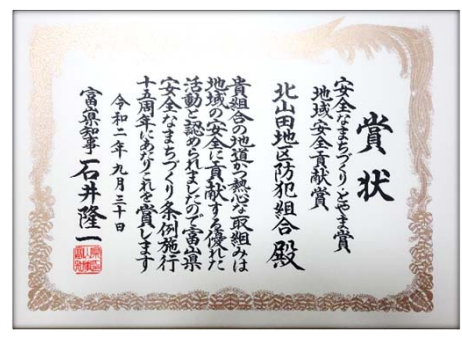 賞状
安全なまちづくりとやま賞
地域安全貢献賞
北山田地区防犯組合殿
貴組合の地道かつ熱心な取組みは
地域の安全に貢献する優れた
活動と認められましたので富山県
安全なまちづくり条例施行
十五周年にあたりこれを賞します
令和二年九月三十日
富山県知事 石井隆一